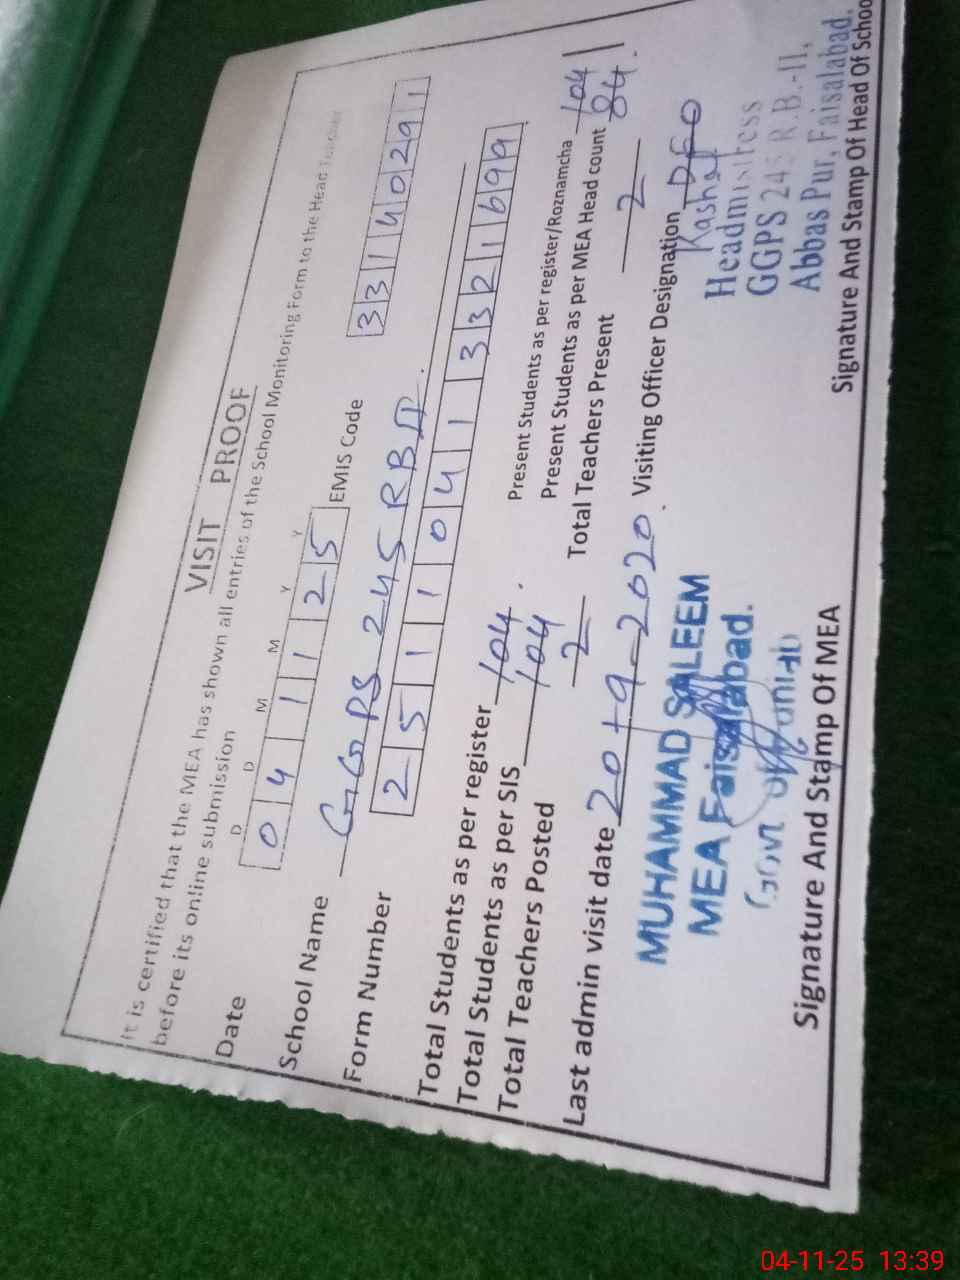 VISIT PROOF
It is certified that the MEA has shown all entries of the School Monitoring Form to the Head Teacher
before its online submission
D D M M Y Y
Date 0 4 1 1 2 5 EMIS Code 3 3 1 4 0 2 9 1
School Name GGPS 245 RB II.
Form Number 2 5 1 1 0 4 1 1 3 3 2 1 6 9 9
Total Students as per register 104 Present Students as per register/Roznamcha 104
Total Students as per SIS 104 Present Students as per MEA Head count 84.
Total Teachers Posted 2 Total Teachers Present 2
Last admin visit date 20-9-2020. Visiting Officer Designation DEO
MUHAMMAD SALEEM
MEA Faisalabad.
Govt
Headmistress
GGPS 245 R.B.-II,
Abbas Pur, Faisalabad.
Signature And Stamp Of MEA Signature And Stamp Of Head Of School
04-11-25 13:39